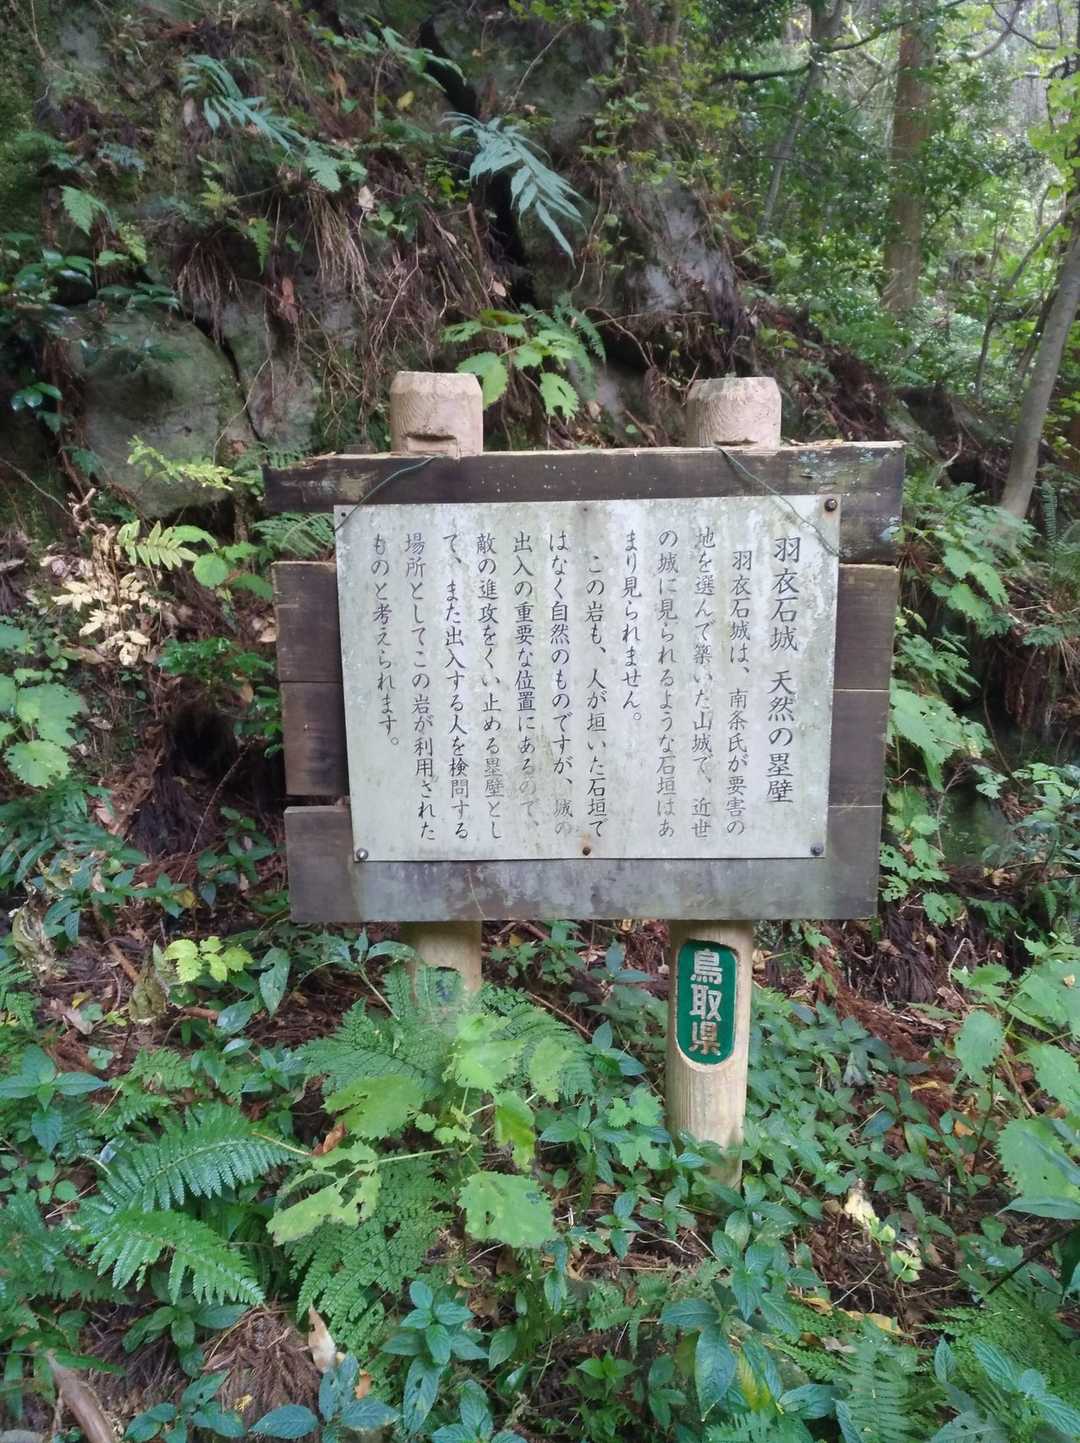 羽衣石城　天然の塁壁
羽衣石城は、南条氏が要害の
地を選んで築いた山城で、近世
の城に見られるような石垣はあ
まり見られません。
この岩も、人が垣いた石垣で
はなく自然のものですが、城の
出入の重要な位置にあるので、
敵の進攻をくい止める塁壁とし
て、また出入する人を検問する
場所としてこの岩が利用された
ものと考えられます。
鳥取県